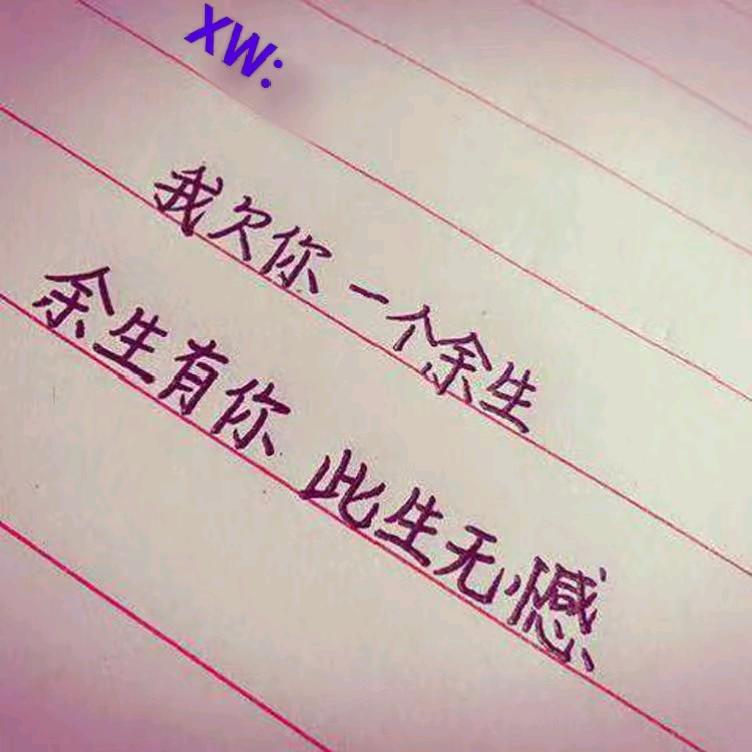 XW:
我欠你一个余生
余生有你 此生无憾